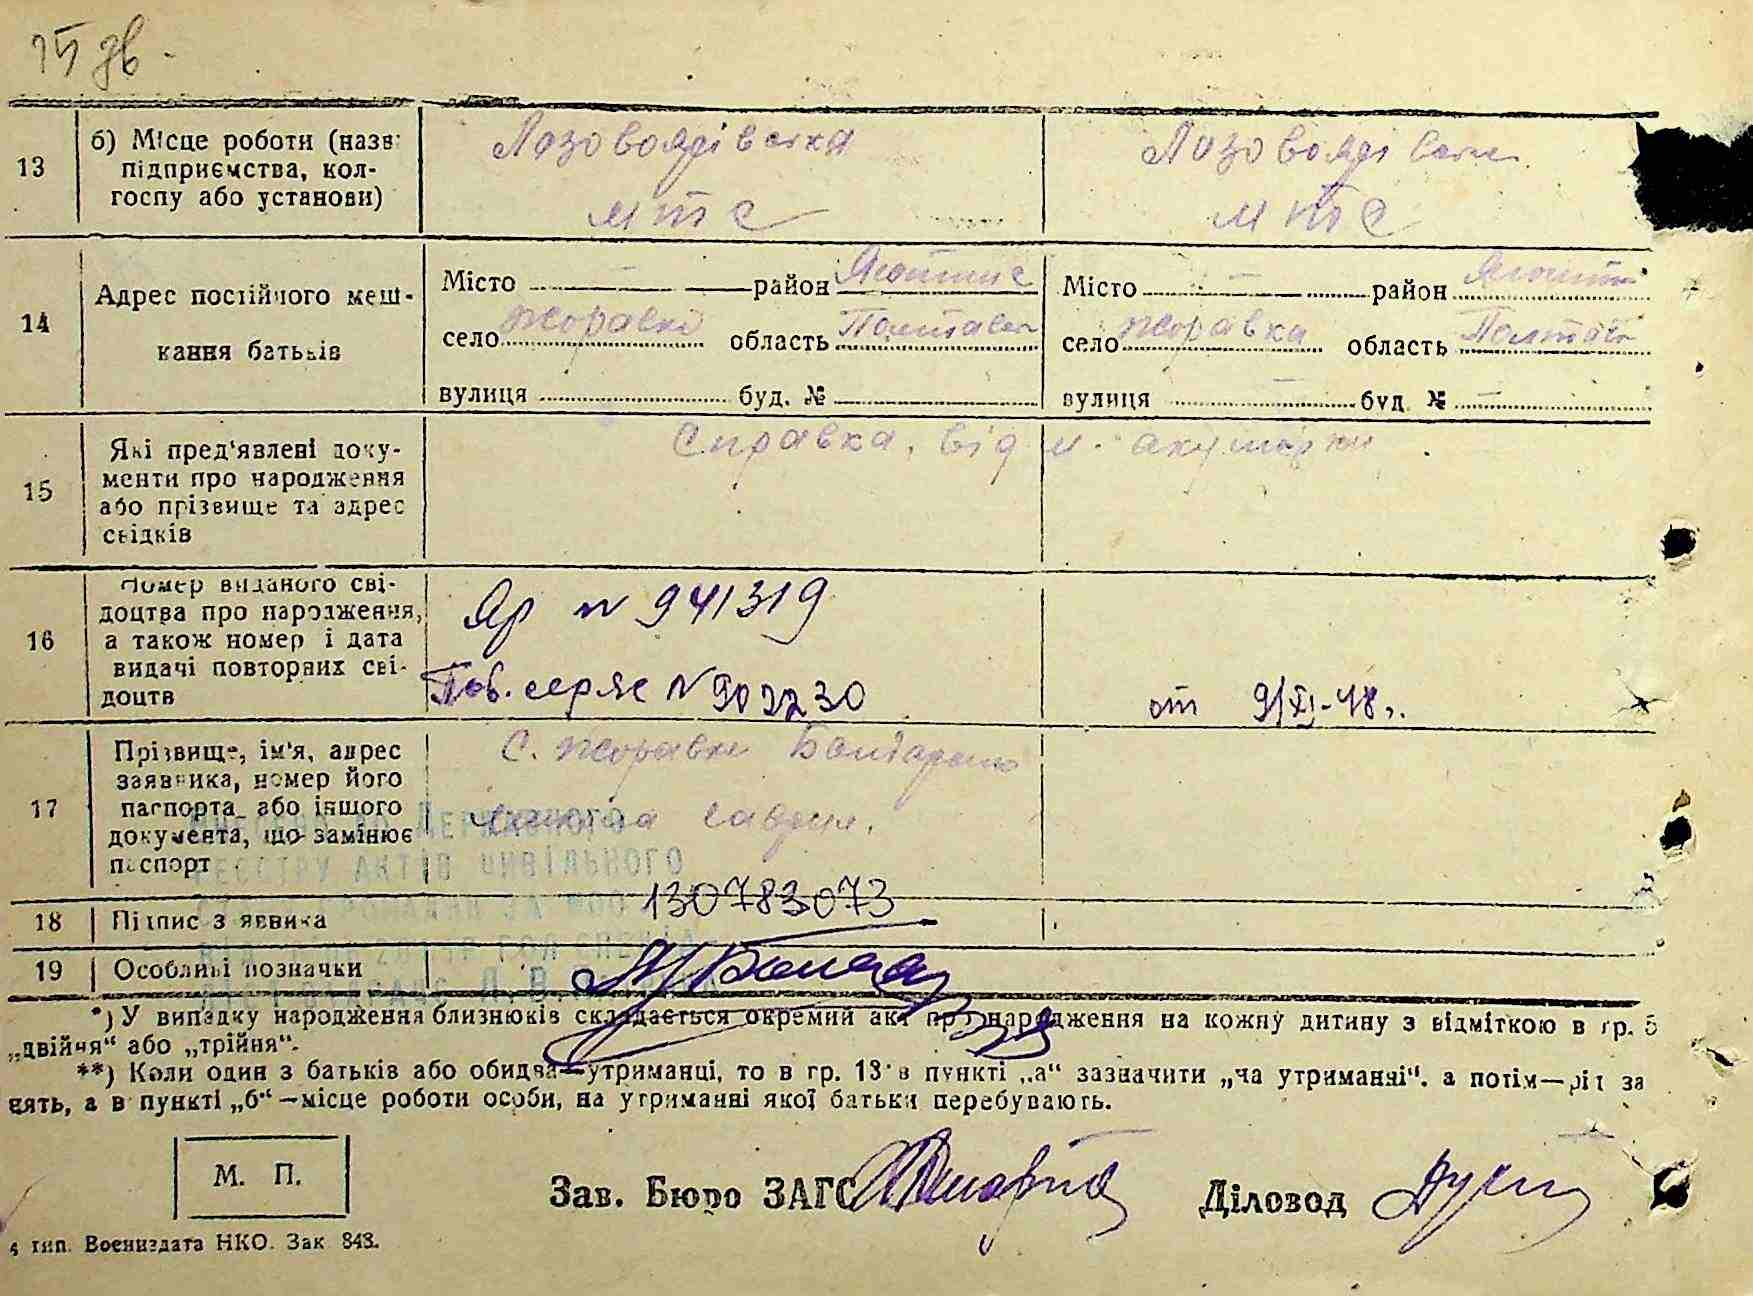 15 зв.
13 б) Місце роботи (назв підприємства, колгоспу або установи) Лазовоярівська МТС Лазовоярівськ МТС
14 Адрес постійного меш-
кання батьків
Місто район село Жоравка область Полтавськ
вулиця буд. №
Місто район село Жоравка область Полтавс
вулиця буд №
15 Які пред'явлені доку-
менти про народження
або прізвище та адрес
свідків
Справка від акушерки
16 Номер виданого сві-
доцтва про народження,
а також номер і дата
видачі повторних сві-
доцтв
Яр N 941319
Пов. серяє N 902230 от 9/XI-48г.
17 Прізвище, ім'я, адрес
заявника, номер його
паспорта або іншого
документа, що замінює
паспорт
С. Жоравка Бондаренко
ДЕРЖАВНОГО
РЕЄСТРУ АКТІВ ЦИВІЛЬНОГО
130783073
18 Підпис з явника
19 Особливі позначки
*) У випадку народження близнюків складається окремий акт про народження на кожну дитину з відміткою в гр. 5
„двійня“ або „трійня“.
**) Коли один з батьків або обидва—утриманці, то в гр. 13 в пункті „а“ зазначити „на утриманні“. а потім—рід за
нять, а в пункті „б“—місце роботи особи, на утриманні якої батьки перебувають.
М. П.
Зав. Бюро ЗАГС Діловод
тип. Воениздата НКО. Зак 843.